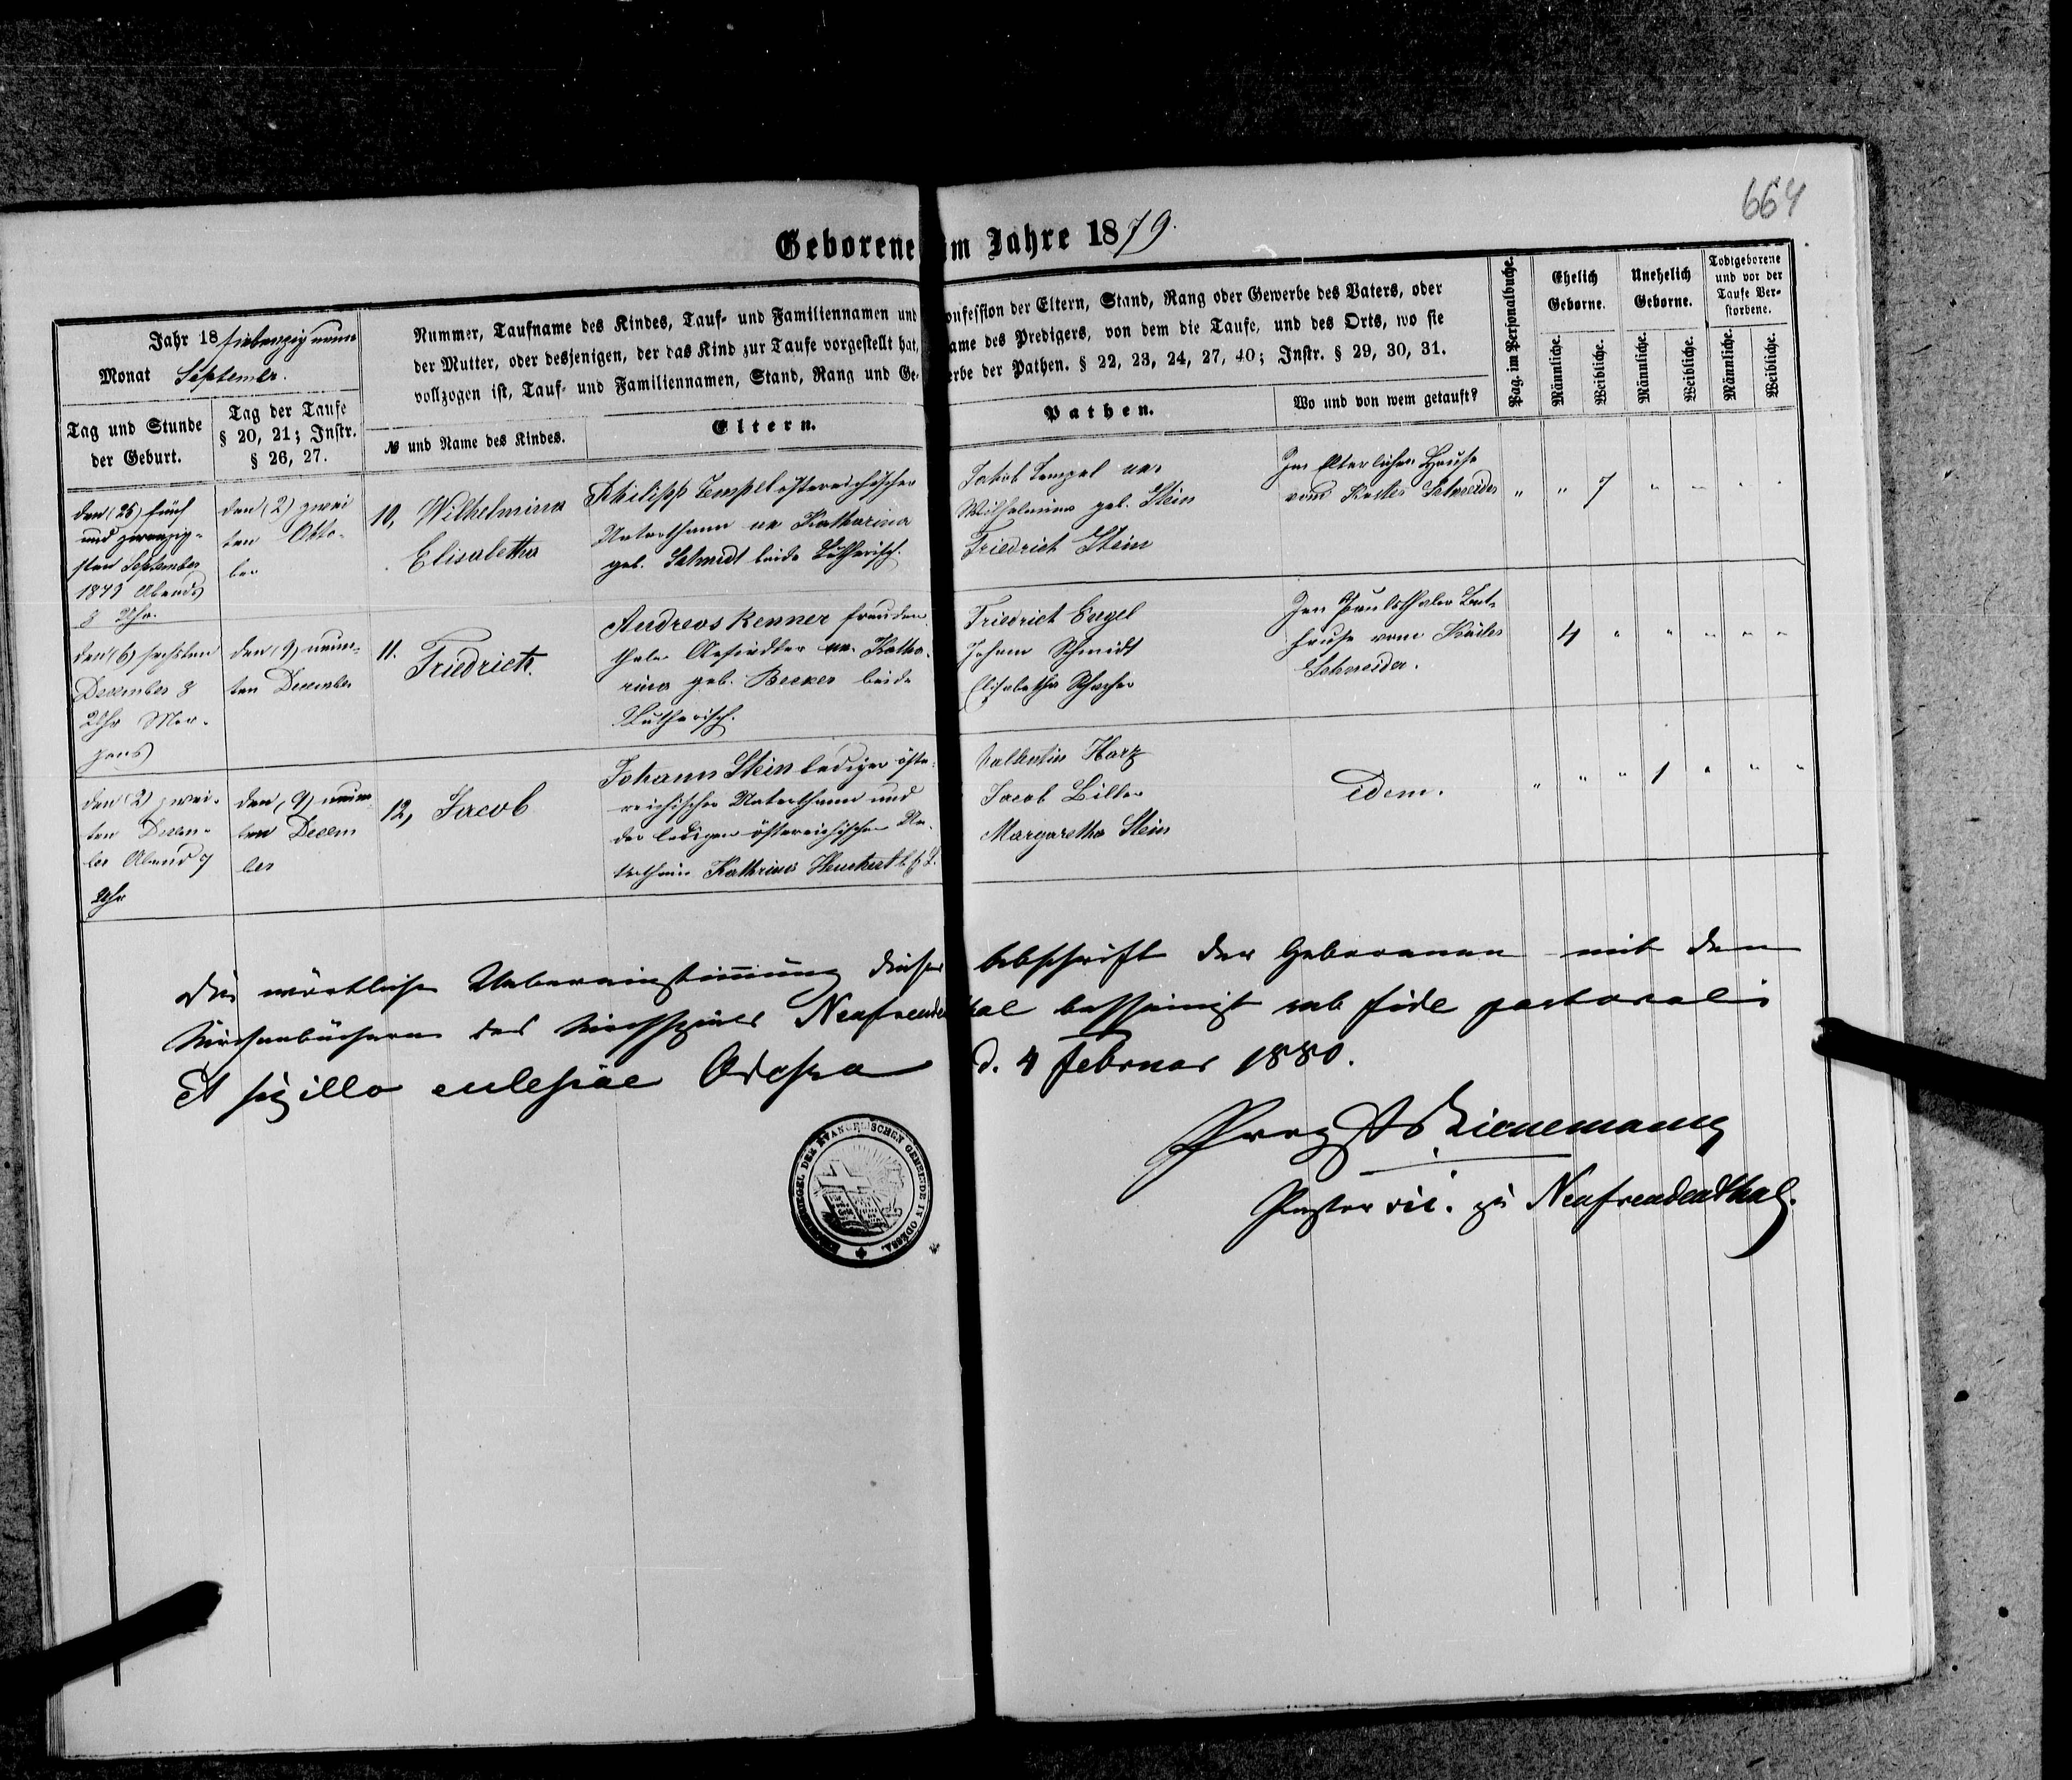 664
Geborene im Jahre 1879.
Jahr 18 siebenzig neun
Monat September.
Tag und Stunde
der Geburt.
Tag der Taufe
§ 20, 21; Instr.
§ 26, 27.
Nummer, Taufname des Kindes, Tauf- und Familiennamen und
der Mutter, oder desjenigen, der das Kind zur Taufe vorgestellt hat,
vollzogen ist, Tauf- und Familiennamen, Stand, Rang und Ge-
№ und Name des Kindes.
Eltern.
onfession der Eltern, Stand, Rang oder Gewerbe des Vaters, oder
ame des Predigers, von dem die Taufe, und des Orts, wo sie
erbe der Pathen. § 22, 23, 24, 27, 40; Instr. § 29, 30, 31.
Pathen.
Wo und von wem getauft?
Pag. im Personalbuche.
Ehelich
Geborne.
Unehelich
Geborne.
Todtgeborene
und vor der
Taufe Ver-
storbene.
Männliche.
Weibliche.
Männliche.
Weibliche.
Männliche.
Weibliche.
den (25) fünf
und zwanzig-
sten September
1879 Abends
8 Uhr.
den (2) zwei
ten Okto-
ber
10, Wilhelmina
Elisabetha
Philipp Tempel östereichischer
Unterthann u. Katharina
geb. Schmidt beide Lutherisch.
Jakob Tempel
Wilhelmina geb. Stein
Friedrich Stein
Im Elterlichen Hause
vom Küster Schneider
" " 7 " " " "
den (6) sechsten
December 8
Uhr Mor-
gens
den (9) neun-
ten December
11. Friedrich.
Andreas Renner freuden
thaler Ansiedler u. Katha-
rina geb. Becker beide
Lutherisch.
Friedrich Engel
Johann Schmidt
Elisabetha
Im Paulsthaler Bet-
hause vom Küster
Schneider.
4 " " " " "
den (2) zwei-
ten Decem-
ber Abend 7
Uhr
den (9) neun
ten Decem
ber
12, Jacob
Johann Stein lediger öste-
reichischer Unterthann und
der ledigen östereichischen Un-
terthanin Kathrina
Valentin Harz
Jacob
Margaretha Stein
Idem.
" " " 1 " " "
Die wörtliche Uebereinstimmung dieser Abschrift der Geborenen mit den
Kirchenbüchern des Kirchspiels Neufreudenthal bescheinigt sub fide pastorali
et sigillo eclesiae Odessa d. 4 Februar 1880.
Propst Bienemann
Pastor vic. zu Neufreudenthal.
KIRCHENSIEGEL DER EVANGELISCHEN GEMEINDE IN ODESSA.